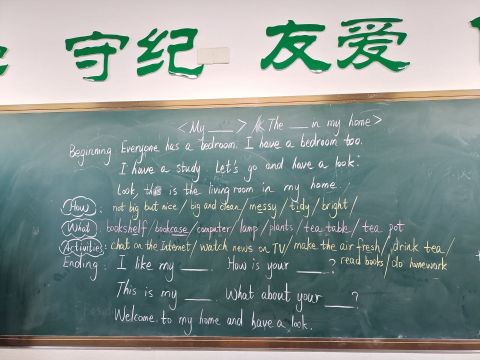 守纪 友爱
<My ___> / <The ___ in my home>
Beginning: Everyone has a bedroom. I have a bedroom too.
I have a study. Let's go and have a look!
Look, this is the living room in my home.
How: not big but nice / big and clean / messy / tidy / bright /
What: bookshelf / bookcase / computer / lamp / plants / tea table / tea pot
Activities: chat on the Internet / watch news on TV / make the air fresh / drink tea /
read books / do homework
Ending: I like my ___. How is your ___?
This is my ___. What about your ___?
Welcome to my home and have a look.